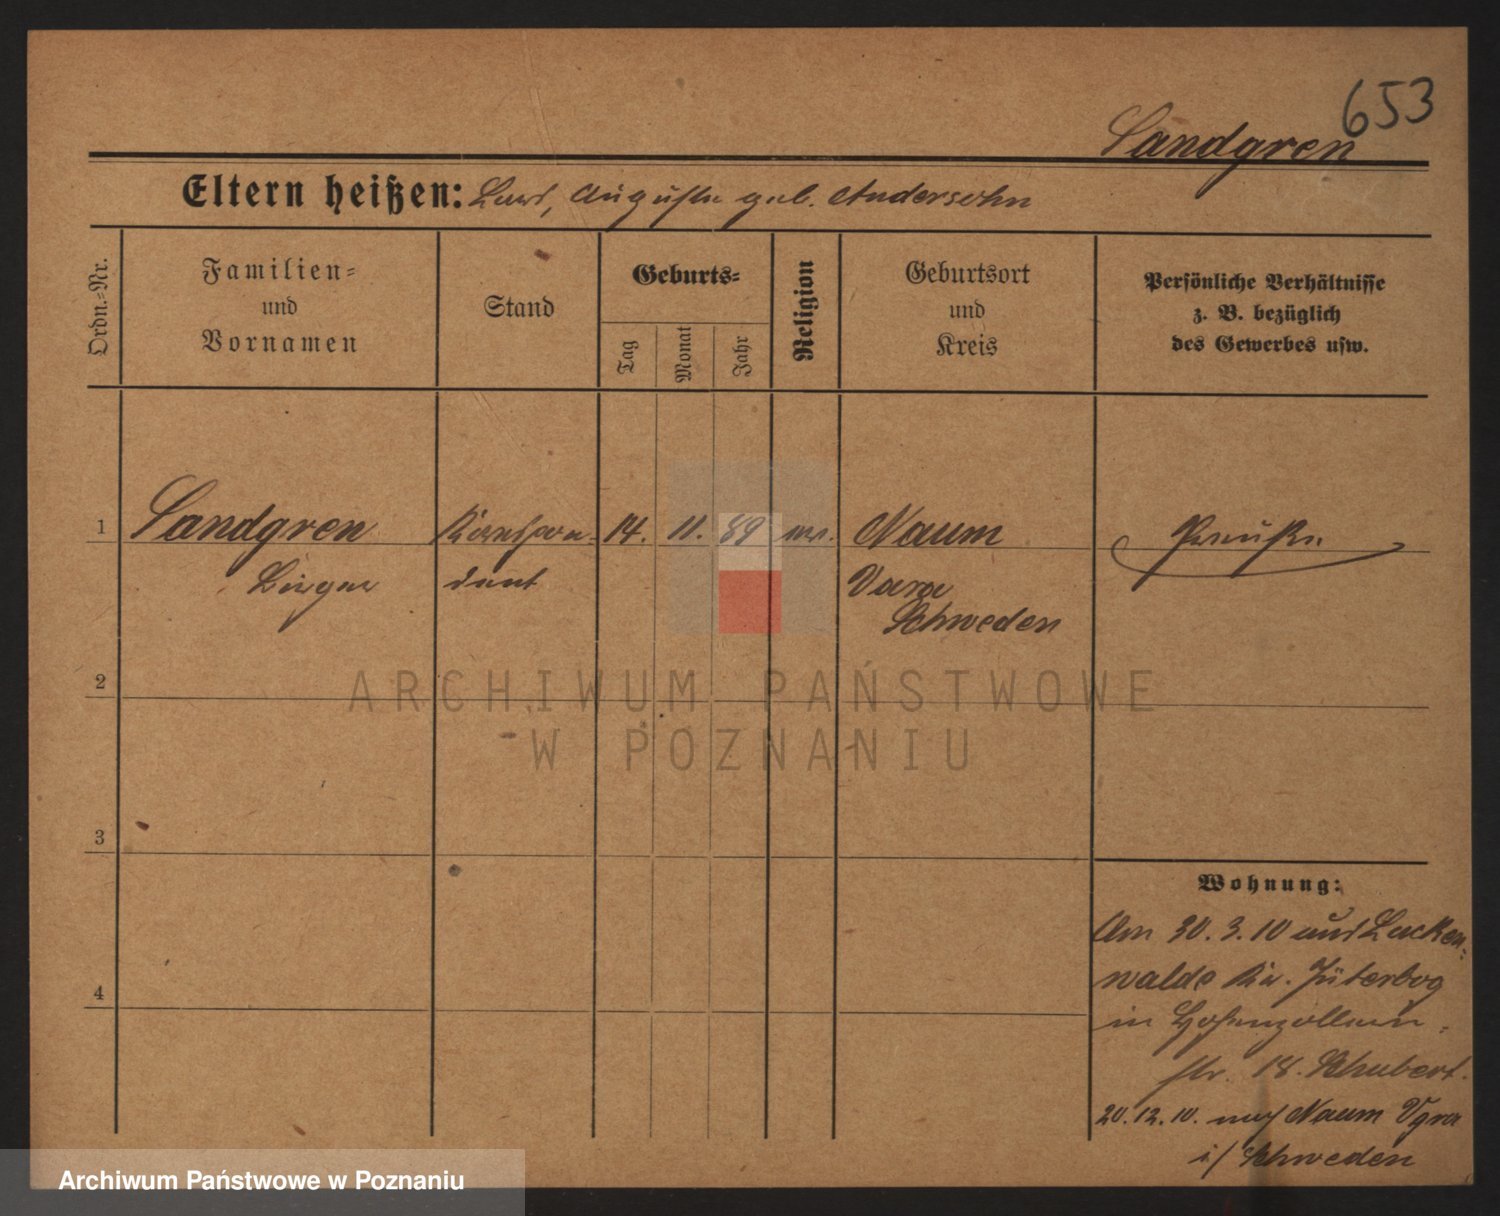 653
Sandgren
Eltern heißen: Karl, Auguste geb. Andersohn
Ordn.-Nr.
Familien-
und
Vornamen
Stand
Geburts-
Tag
Monat
Jahr
Religion
Geburtsort
und
Kreis
Persönliche Verhältnisse
z. B. bezüglich
des Gewerbes usw.
1 Sandgren Korrespon- 14. 11. 89 ev. Naum Preuße
Birger dent Vara
Schweden
2
ARCHIWUM PAŃSTWOWE
W POZNANIU
3
4
Wohnung:
Am 30.3.10 aus Lucken-
walde Kr. Jüterbog
in Hohenzollern-
str. 18. Schubert.
20.12.10. nach Naum
i/ Schweden
Archiwum Państwowe w Poznaniu